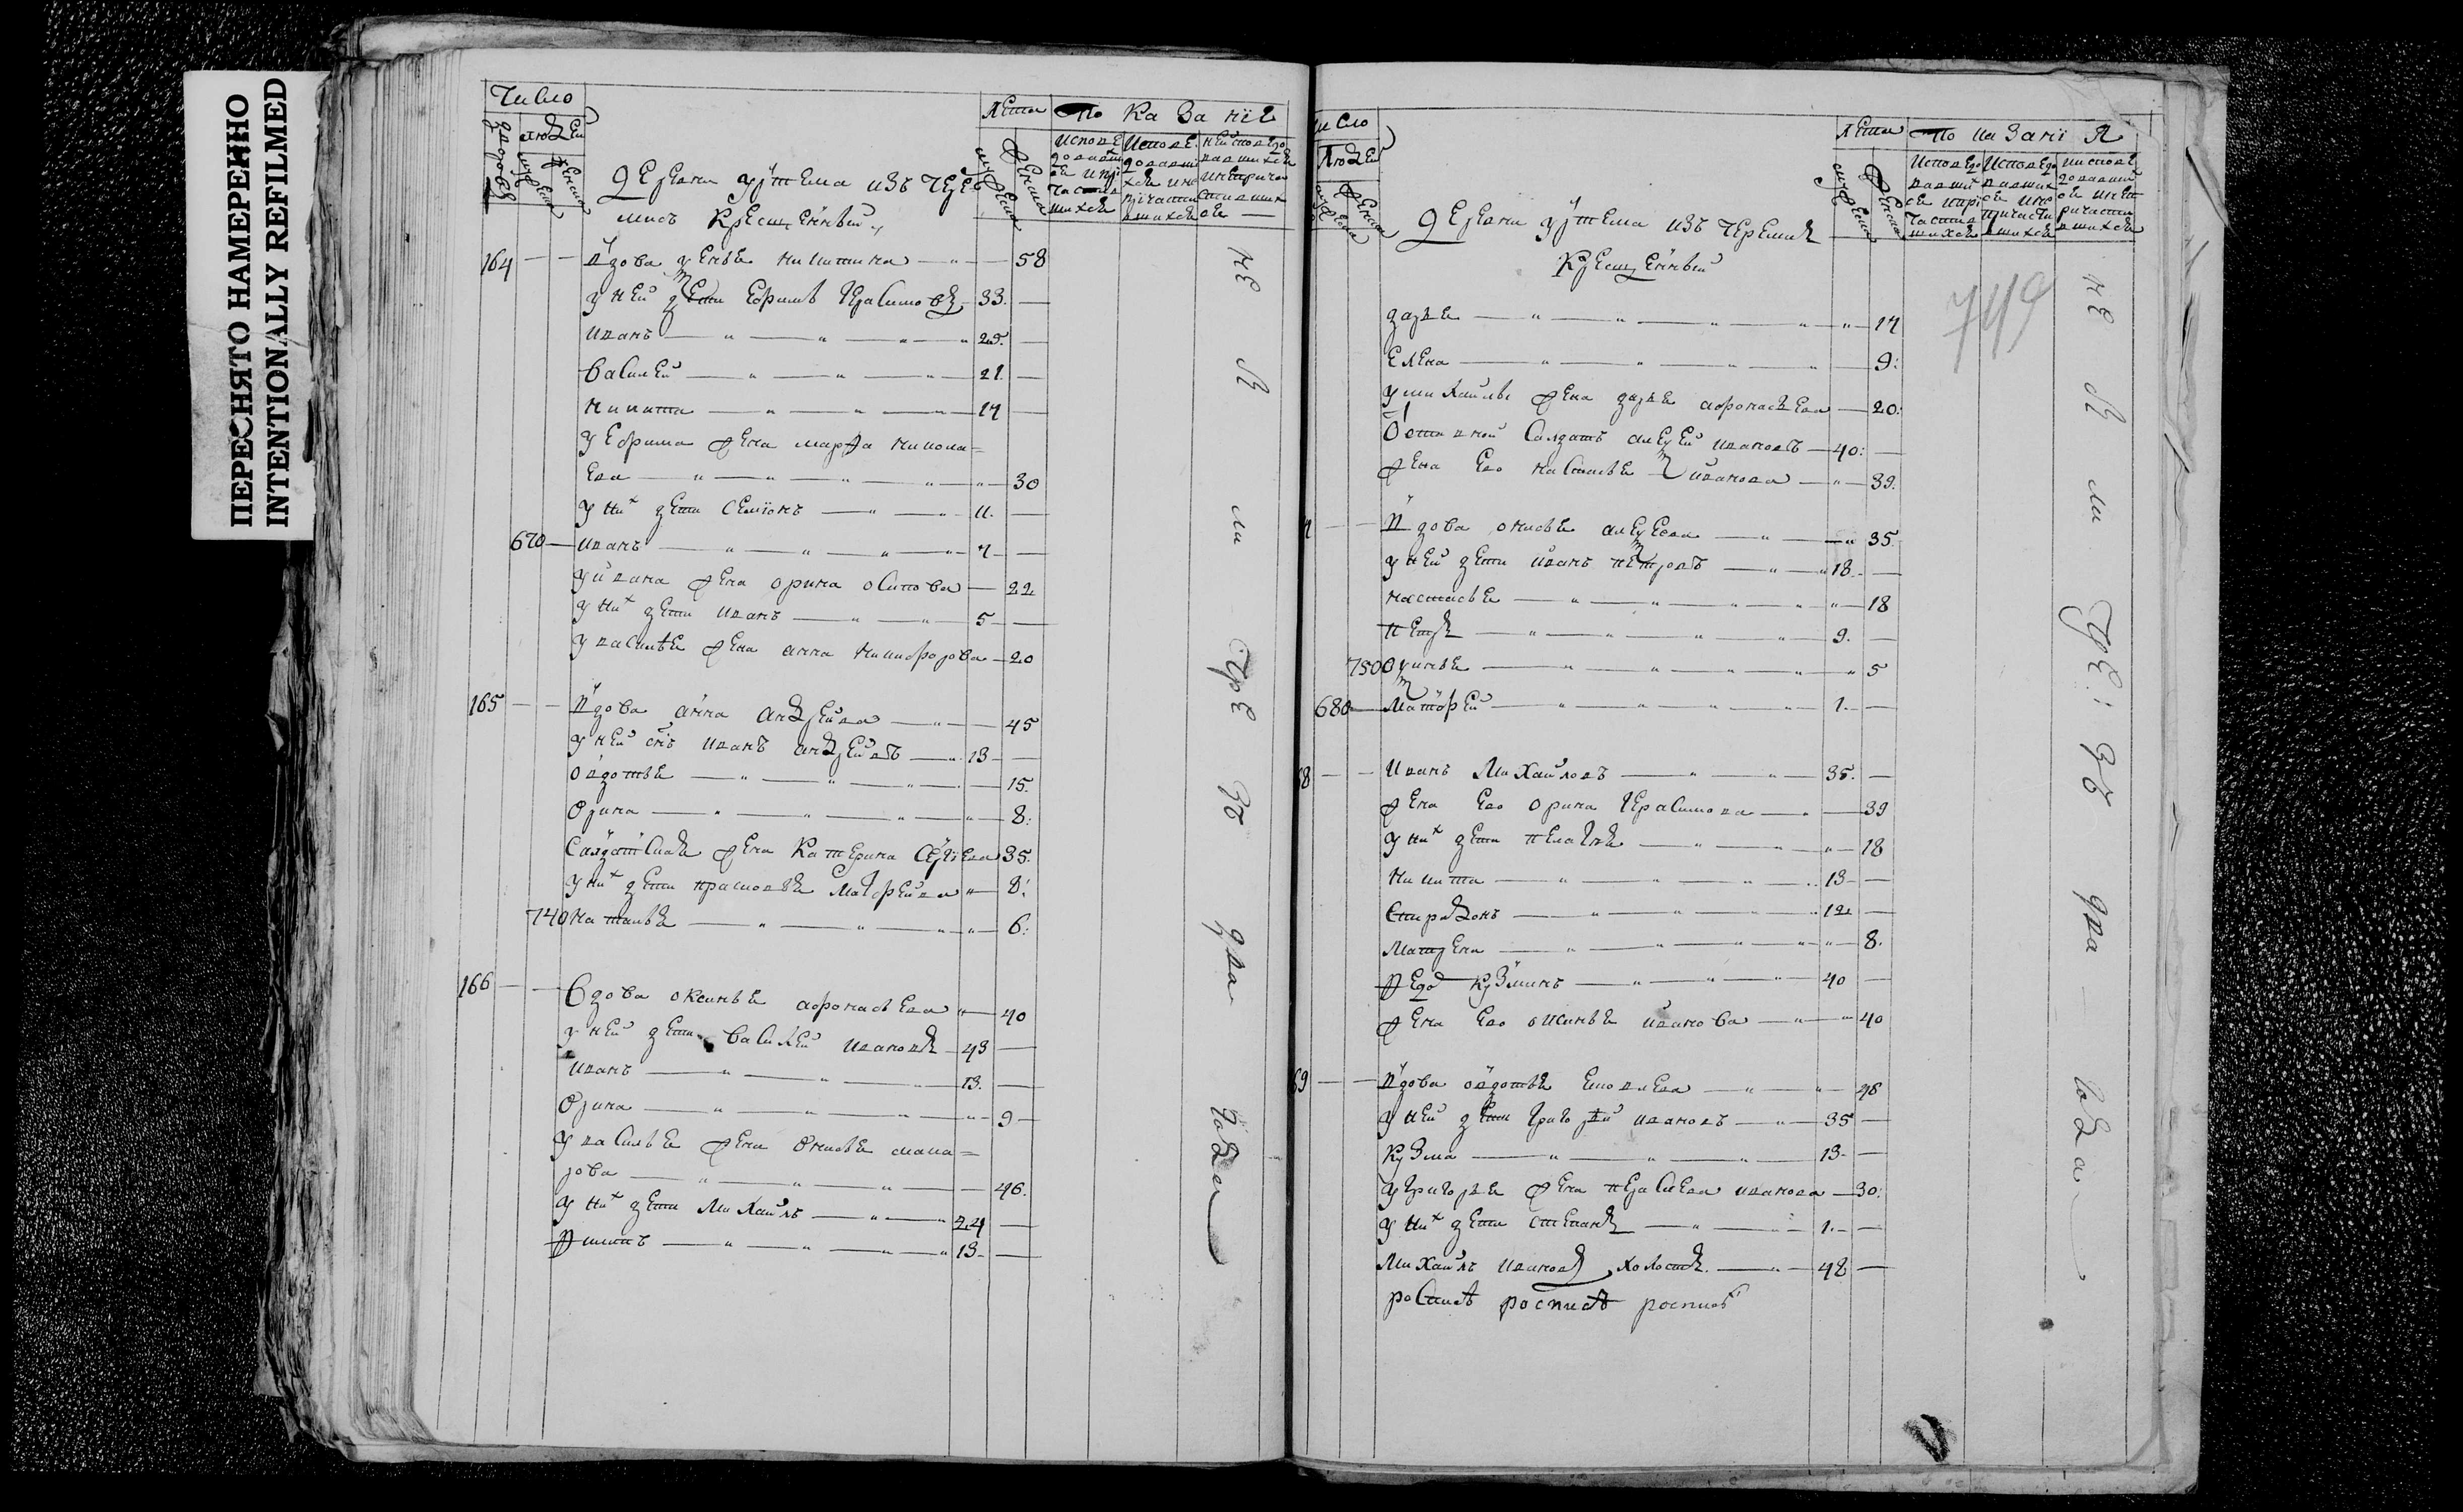 ПЕРЕСНЯТО НАМЕРЕННО
INTENTIONALLY REFILMED
Число
людей
Лета
Показание
деревни из чере
мисъ крещенныи
164 вдова никитина 58
у ней дети Ефимъ герасимовъ 33.
иванъ 25.
василей 21.
никита 14
у Ефима жена марфа никола=
ева 30
у них дети семионъ 11.
670 иванъ 7
у ивана жена орина осипова 22
у них дети иванъ 5
у василья жена анна никифорова 20
165 вдова анна андреева 45
у ней снъ иванъ андреевъ 13
овдотья 15.
орина 8:
салдатская жена катерина 35.
у них дети прасковья матфеева 8:
740 наталья 6:
166 вдова оксинья афонасьева 40
у ней дети василей ивановъ 43
иванъ 13.
орина 9
у василья жена онисья мака=
рова 46.
у них дети михайлъ 24
филипъ 13
не ямщ чрезъ два года
число
людей
Лета
Показания
деревни из черемисъ
крещенныи
749
дарья 14
елена 9:
у михайлы жена дарья афонасьева 20:
отставной салдатъ алексей ивановъ 40:
жена ево настасья иванова 39.
вдова онисья алексеева 35.
у ней дети иванъ петровъ 18
настасья 18
петръ 9.
750 оксинья 5
680 матфей 1.
68 иванъ михайловъ 35.
жена ево орина герасимова 39
у них дети пелагея 18
никита 13
спиридонъ 12
матрена 8.
федо кузминъ 40
жена ево оксинья иванова 40
69 вдова овдотья 46
у ней дети григорей ивановъ 35
кузма 13
у григорья жена иванова 30:
у них дети степанъ 1.
михайлъ ивановъ холостъ. 48
роспись роспись роспись
два года